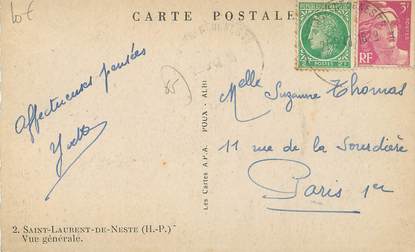 10€
CARTE POSTALE
RF
85
Affectueuses pensées
Yvette
Melle Suzanne Thomas
11 rue de la Sourdière
Paris 1er
Les Cartes A.P.A. POUX - ALBI
2. SAINT-LAURENT-DE-NESTE (H.-P.)
Vue générale.